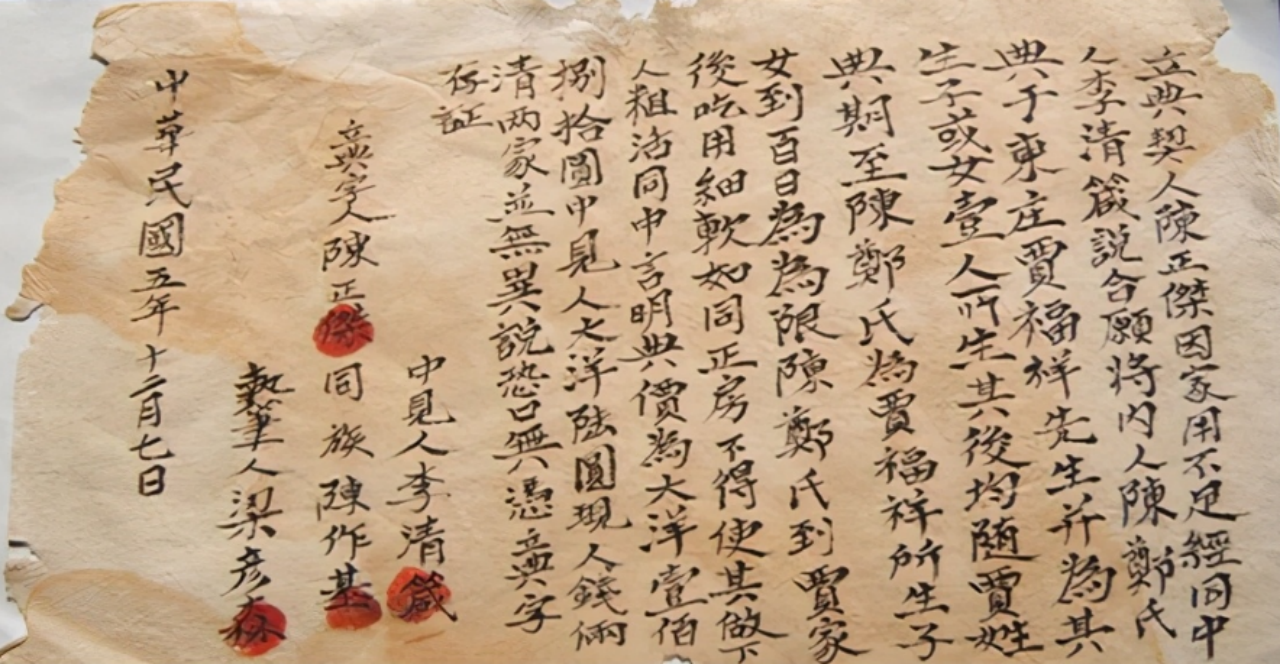 立典契人陳正傑因家用不足經同中
人李清箴說合願將內人陳鄭氏
典于東庄賈福祥先生并為其
生子或女壹人所生其後均隨賈姓
典期至陳鄭氏為賈福祥所生子
女到百日為為限陳鄭氏到賈家
後吃用細軟如同正房不得使其做下
人粗活同中言明典價為大洋壹佰
捌拾圓中見人大洋陸圓現人錢兩
清兩家並無異說恐口無憑立典字
存証
中見人李清箴
立典字人陳正傑同族陳作基
執筆人梁彦森
中華民國五年十二月七日